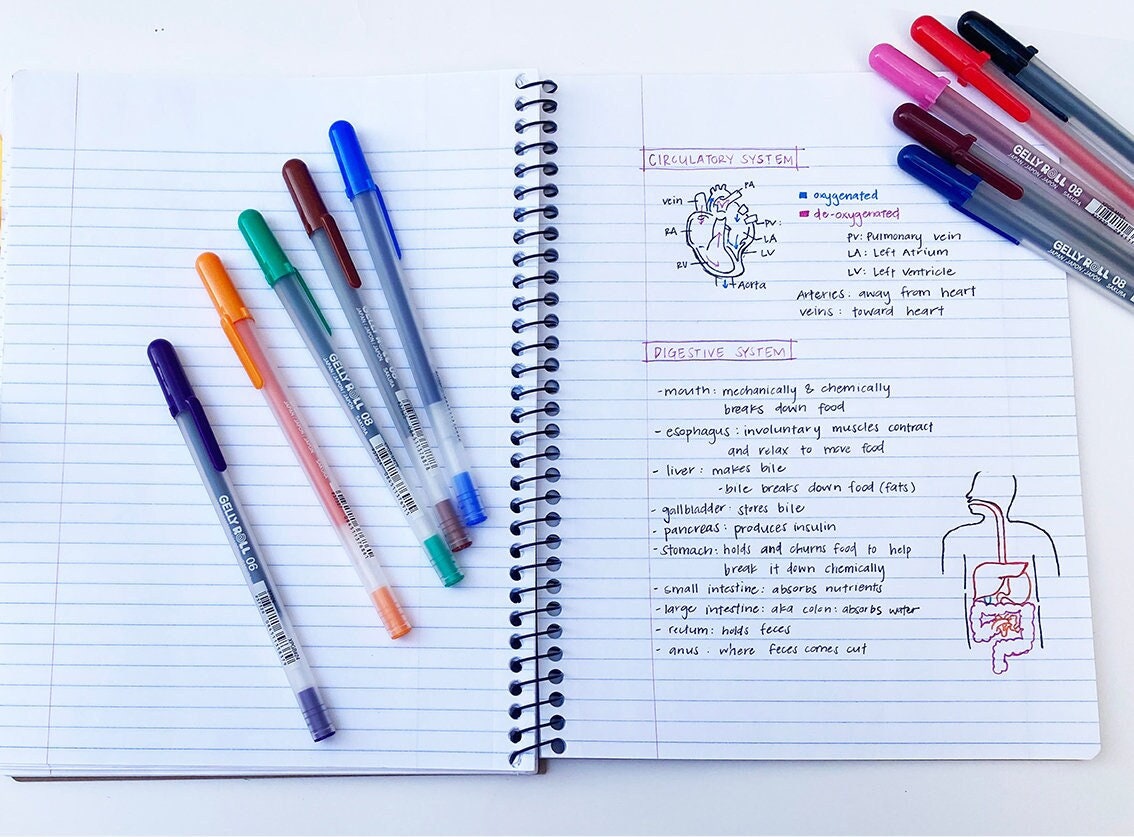 CIRCULATORY SYSTEM
vein
PA
RA
PV:
LA
RV
LV
Aorta
oxygenated
de-oxygenated
PV: Pulmonary vein
LA: Left Atrium
LV: Left Ventricle
Arteries: away from heart
veins: toward heart
DIGESTIVE SYSTEM
- mouth: mechanically & chemically
breaks down food
- esophagus: involuntary muscles contract
and relax to move food
- liver: makes bile
- bile breaks down food (fats)
- gallbladder: stores bile
- pancreas: produces insulin
- stomach: holds and churns food to help
break it down chemically
- small intestine: absorbs nutrients
- large intestine: aka colon: absorbs water
- rectum: holds feces
- anus: where feces comes out
GELLY ROLL 06
GELLY ROLL 08
JAPAN / JAPON / JAPÓN SAKURA
GELLY ROLL 08
JAPAN / JAPON / JAPÓN SAKURA
GELLY ROLL 08
JAPAN / JAPON / JAPÓN SAKURA